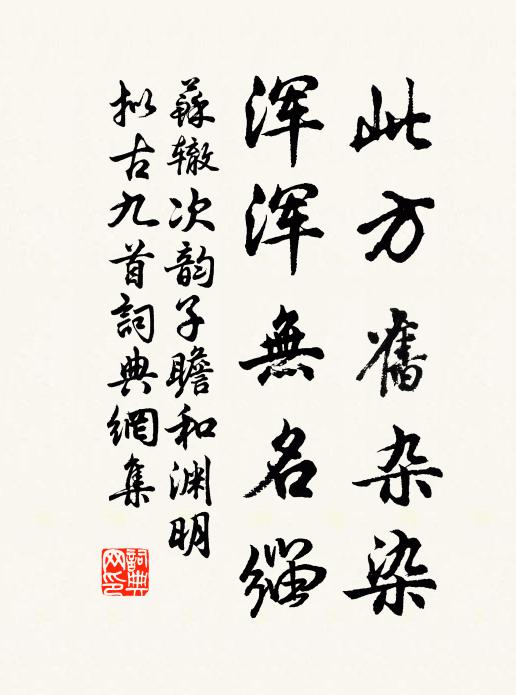 此方舊杂染
浑浑無名缁
蘇辙次韵子瞻和渊明
拟古九首詞典網集
詞典
网印